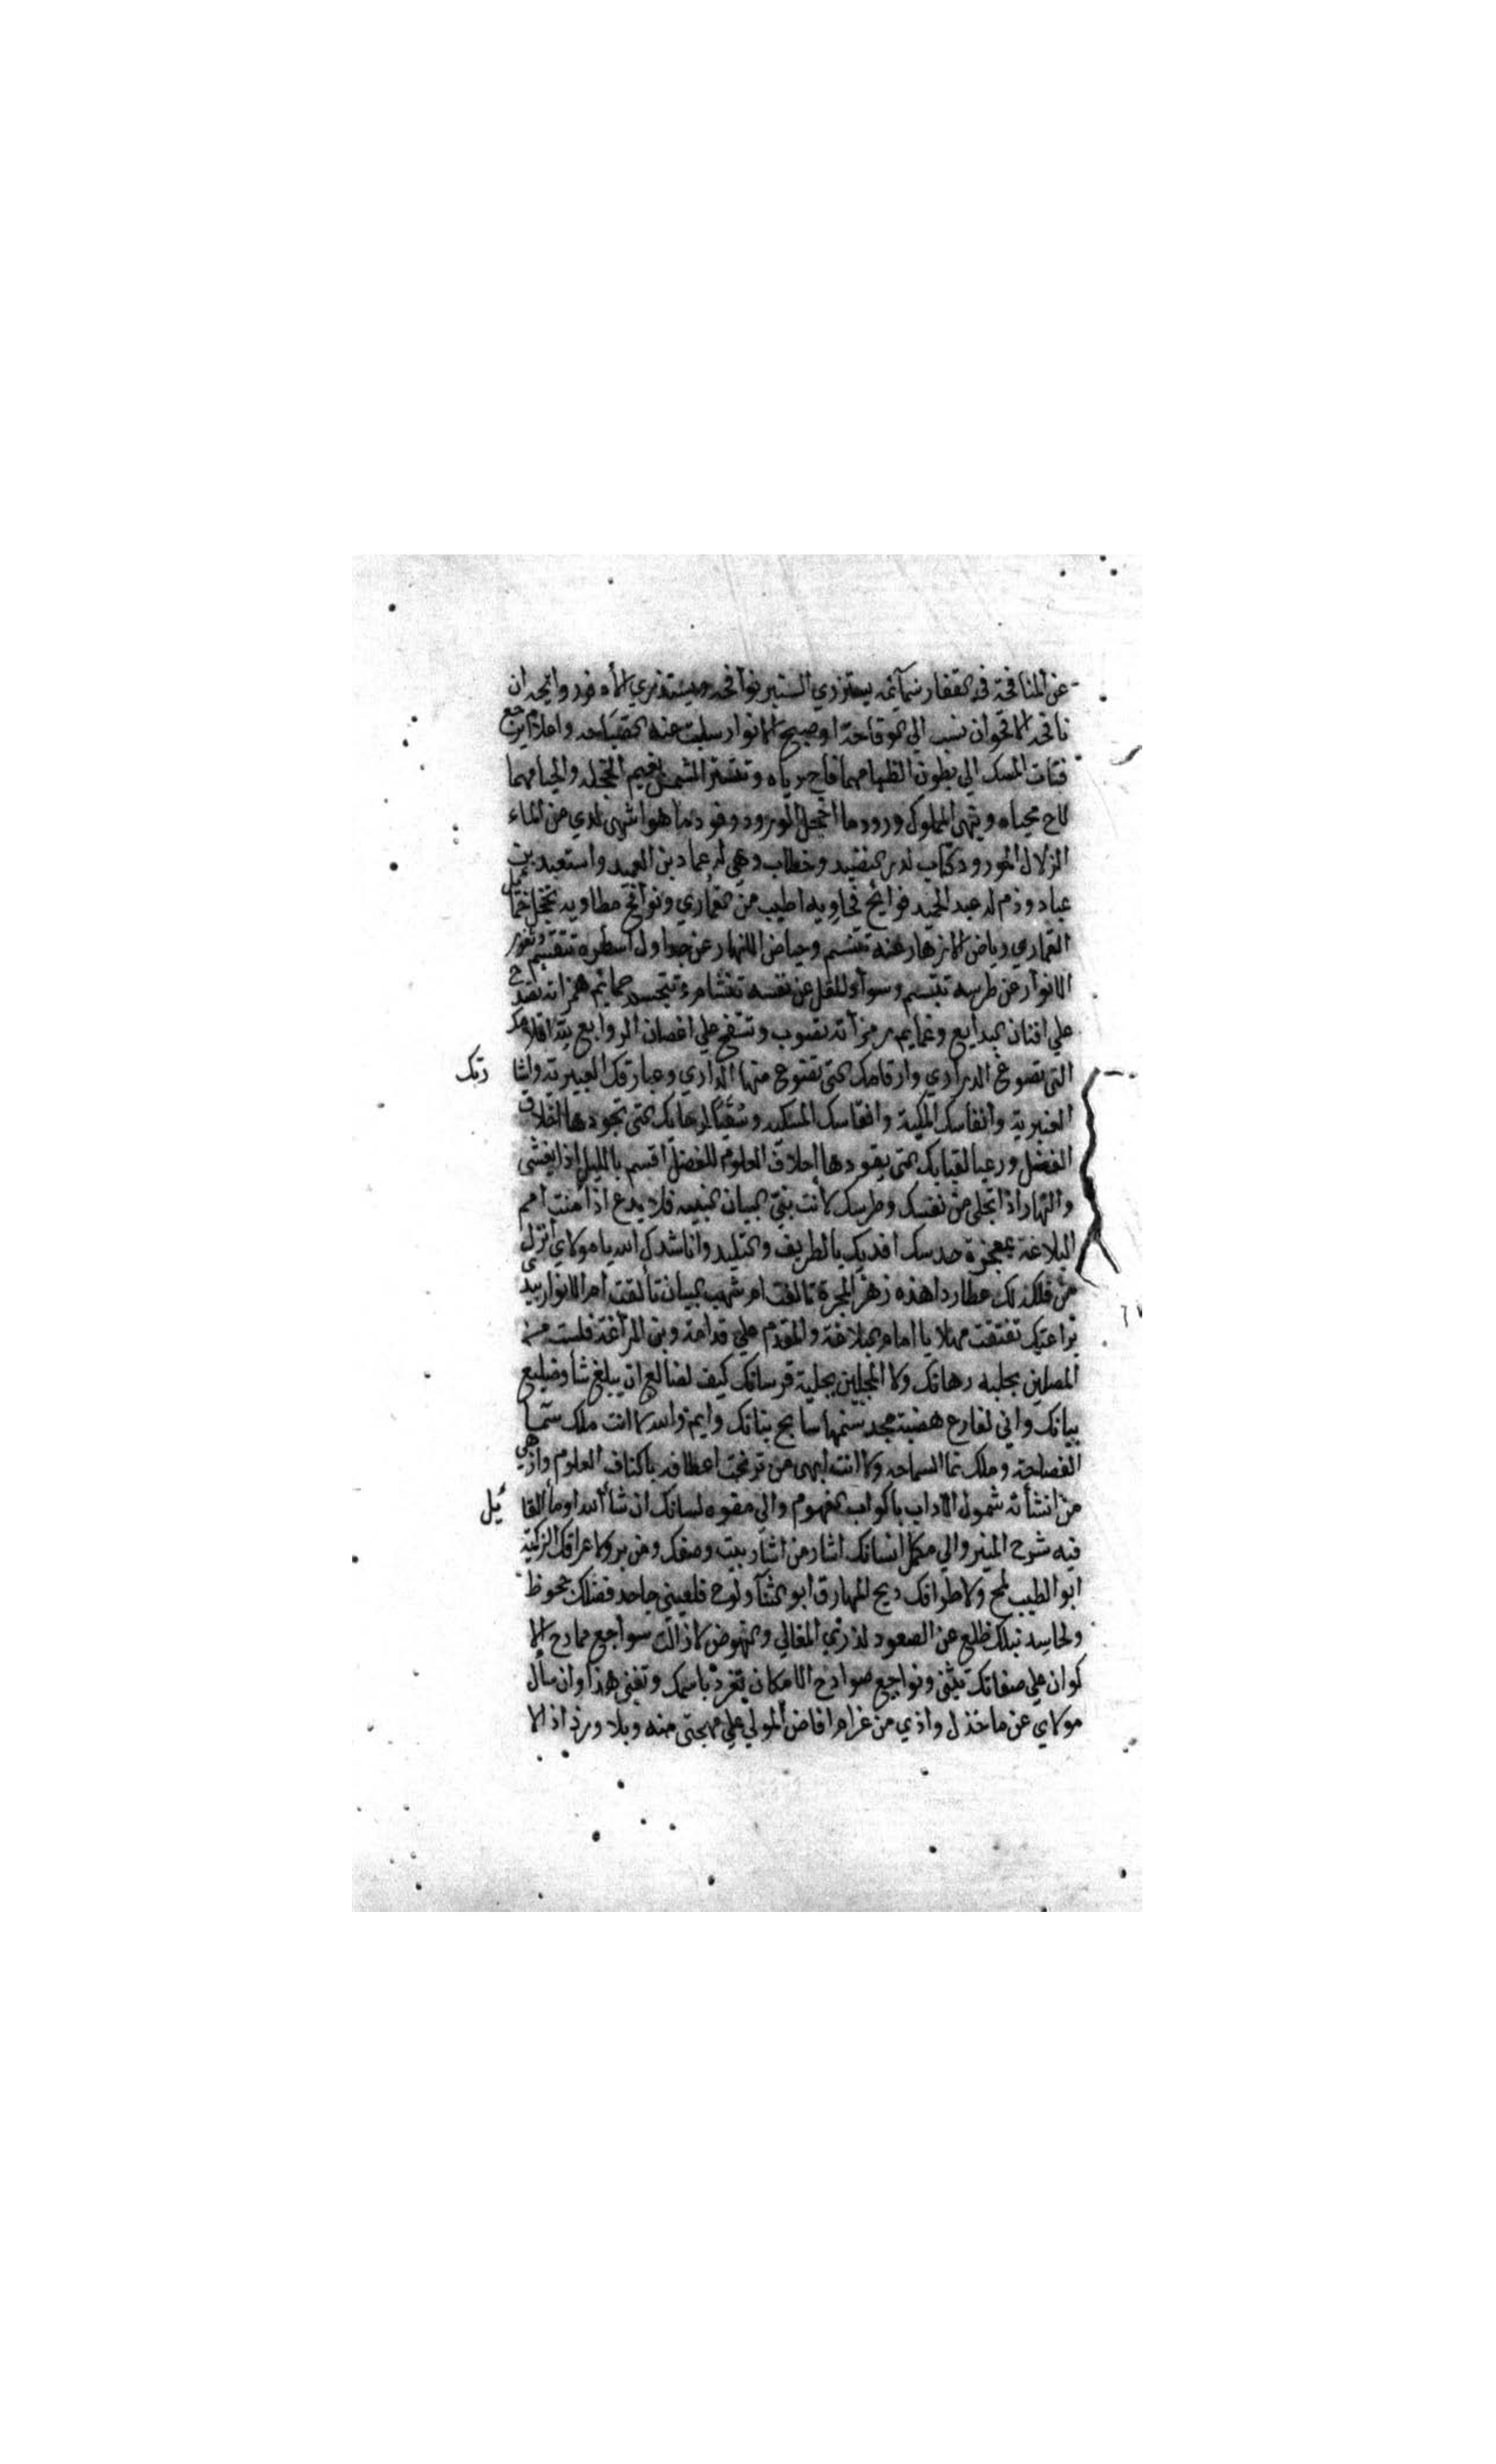 عن المنافحة في القفار نسائمه يستزري العنبر نوافحه ويستذري روائحه ان
نافحه الاقحوان نسب الي الوقاحة او صبيح الانوار سلبت عنه الصباحه
فتات المسك الي بطون الظبا مهما فاح رياه وتتستر الشمس بغيم الخجله والحيا مهما
لاح محياه وينهى المملوك ورود ما اخجل الورود وفود ما هو اشهى لدي من الماء
الزلال المورود كتاب لديه وخطاب وهي له عماد بن العميد واستعبد بن
عباد وذم له عبد الحميد فوايح فحاويه اطيب من القماري ونوافح مطاويه تخجل
القماري رياض الازهار عنه تتنسم وحياض الانهار عن جداول اسطره تتقسم وثغور
الانوار عن طرسه تبتسم
علي افنان البدايع وغمايم رمزاته تصوب وتسفح علي اغصان الروايع
التي تصوغ الدراري وارقامك التي تضوع منها الداري وعبارتك العبيرية واشا
رتك
العنبرية وانفاسك الملكية وانفاسك المسكيه وسقيا لرحابك التي تجودها اخلاف
الفضل ورعيا لقبابك التي يقودها اخلاق العلوم للفضل اقسم بالليل اذا يغشى
والنهار اذا تجلى من نفسك وطرسك لانت بنبي البيان النبيه فلا بدع اذا امنت امم
البلاغة بمعجزة حدسك افديك بالطريف والتليد واناشدك الله يا مولاي أنزل
من فلكه لك عطارد اهذه زهر المجرة تالفت ام شهب البيان تألقت ام الانوار
يراعتك تفتقت مهلا يا امام البلاغة والمقدم علي قدامة وبن المراغة فلست من
المصلين بحلبه رهانك ولا المجلين بحلية فرسانك كيف لضالع ان يبلغ شأو ضليع
بيانك واني لفارع هضبت مجد سنمها سابح بنانك وايم والله لانت ملك سما
الفصاحة وملك سما السماحه ولانت ابهى من ترنحت اعطافه باكناف العلوم وازهي
من انشأته شمول الاداب باكواب الفهوم والي مفوه لسانك ان شأ الله اومأ القا
ئيل
فيه شرح المنير والي مكمل انسانك اشار من اشار ببيت وصفك ومن برو لاعراقك الزكية
ابو الطيب لمح ولاطرافك ديج المهارق ابو الثنآ ولوح فلعيني جاحد فضلك جحوظ
ولحاسد نبلك ظلع عن الصعود لذرى المعالي والنهوض لا زالت سواجع ممادح الا
كوان علي صفاتك تثني ونواجع صوادح الامكان تغرد باسمك وتغني هذا وان سأل
مولاي عن ما خذل واذي من غرام افاض المولي علي مهجتي منه وبلا ورذاذ الا